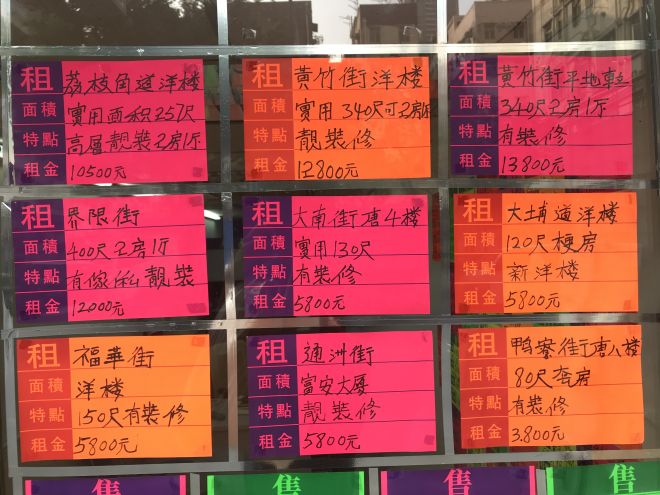 租 荔枝角道洋楼
面積 實用面积257尺
特點 高層靚裝2房1厅
租金 10500元
租 黃竹街洋楼
面積 實用340尺可2房1厅
特點 靚裝修
租金 12800元
租 黃竹街平地
面積 340尺2房1厅
特點 有裝修
租金 13800元
租 界限街
面積 400尺2房1厅
特點 有傢俬靚裝
租金 12000元
租 大南街唐4楼
面積 實用130尺
特點 有裝修
租金 5800元
租 大埔道洋楼
面積 120尺梗房
特點 新洋楼
租金 5800元
租 福華街
面積 洋楼
特點 150尺有裝修
租金 5800元
租 通洲街
面積 富安大厦
特點 靚裝修
租金 5800元
租 鸭寮街唐八楼
面積 80尺套房
特點 有裝修
租金 3.800元
售 售 售 售